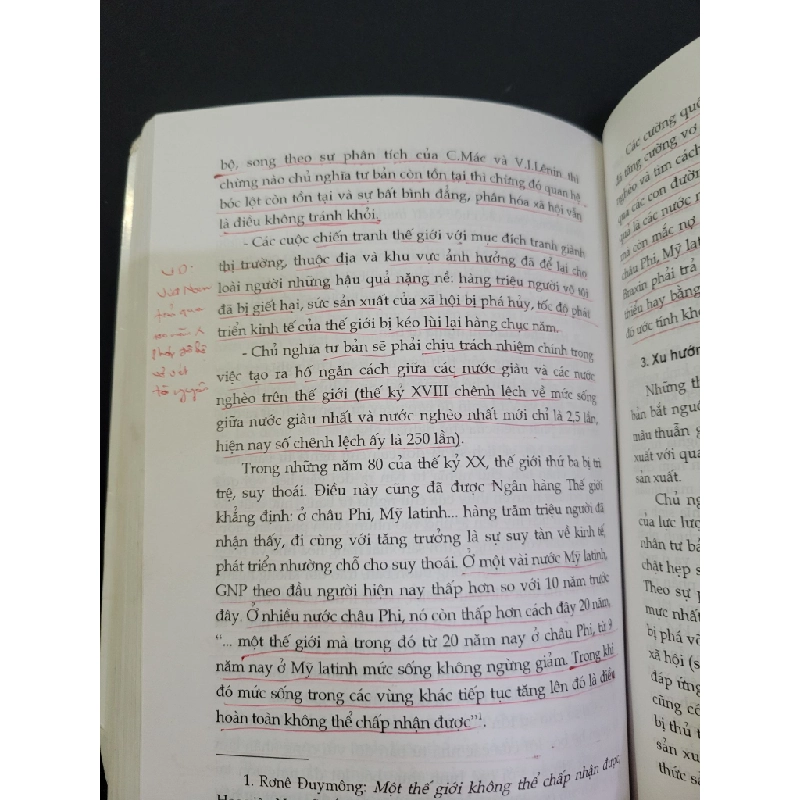 bộ, song theo sự phân tích của C.Mác và V.I.Lênin thì
chừng nào chủ nghĩa tư bản còn tồn tại thì chừng đó quan hệ
bóc lột còn tồn tại và sự bất bình đẳng, phân hóa xã hội vẫn
là điều không tránh khỏi.
- Các cuộc chiến tranh thế giới với mục đích tranh giành
thị trường, thuộc địa và khu vực ảnh hưởng đã để lại cho
loài người những hậu quả nặng nề: hàng triệu người vô tội
đã bị giết hại, sức sản xuất của xã hội bị phá hủy, tốc độ phát
triển kinh tế của thế giới bị kéo lùi lại hàng chục năm.
- Chủ nghĩa tư bản sẽ phải chịu trách nhiệm chính trong
việc tạo ra hố ngăn cách giữa các nước giàu và các nước
nghèo trên thế giới (thế kỷ XVIII chênh lệch về mức sống
giữa nước giàu nhất và nước nghèo nhất mới chỉ là 2,5 lần,
hiện nay số chênh lệch ấy là 250 lần).
Trong những năm 80 của thế kỷ XX, thế giới thứ ba bị trì
trệ, suy thoái. Điều này cũng đã được Ngân hàng Thế giới
khẳng định: ở châu Phi, Mỹ latinh... hàng trăm triệu người đã
nhận thấy, đi cùng với tăng trưởng là sự suy tàn về kinh tế,
phát triển nhường chỗ cho suy thoái. Ở một vài nước Mỹ latinh,
GNP theo đầu người hiện nay thấp hơn so với 10 năm trước
đây. Ở nhiều nước châu Phi, nó còn thấp hơn cách đây 20 năm,
"... một thế giới mà trong đó từ 20 năm nay ở châu Phi, từ 9
năm nay ở Mỹ latinh mức sống không ngừng giảm. Trong khi
đó mức sống trong các vùng khác tiếp tục tăng lên đó là điều
hoàn toàn không thể chấp nhận được"¹.
1. Rơnê Đuymông: Một thế giới không thể chấp nhận được,
VD:
Việt Nam
Các cường quố
đã tăng cường vơ
nghèo và tìm cách
qua các con đườn
quả là các nước n
mà còn mắc nợ
châu Phi, Mỹ latin
Braxin phải trả
triều hay bằng
đó ước tính kh
3. Xu hướn
Những th
bản bắt nguồ
mâu thuẫn g
xuất với qua
sản xuất.
Chủ ng
của lực lượ
nhân tư bả
chật hẹp s
Theo sự p
mực nhất
bị phá vỡ
xã hội (s
đáp ứng
cũng có
bị thủ t
sản xu
thức sả